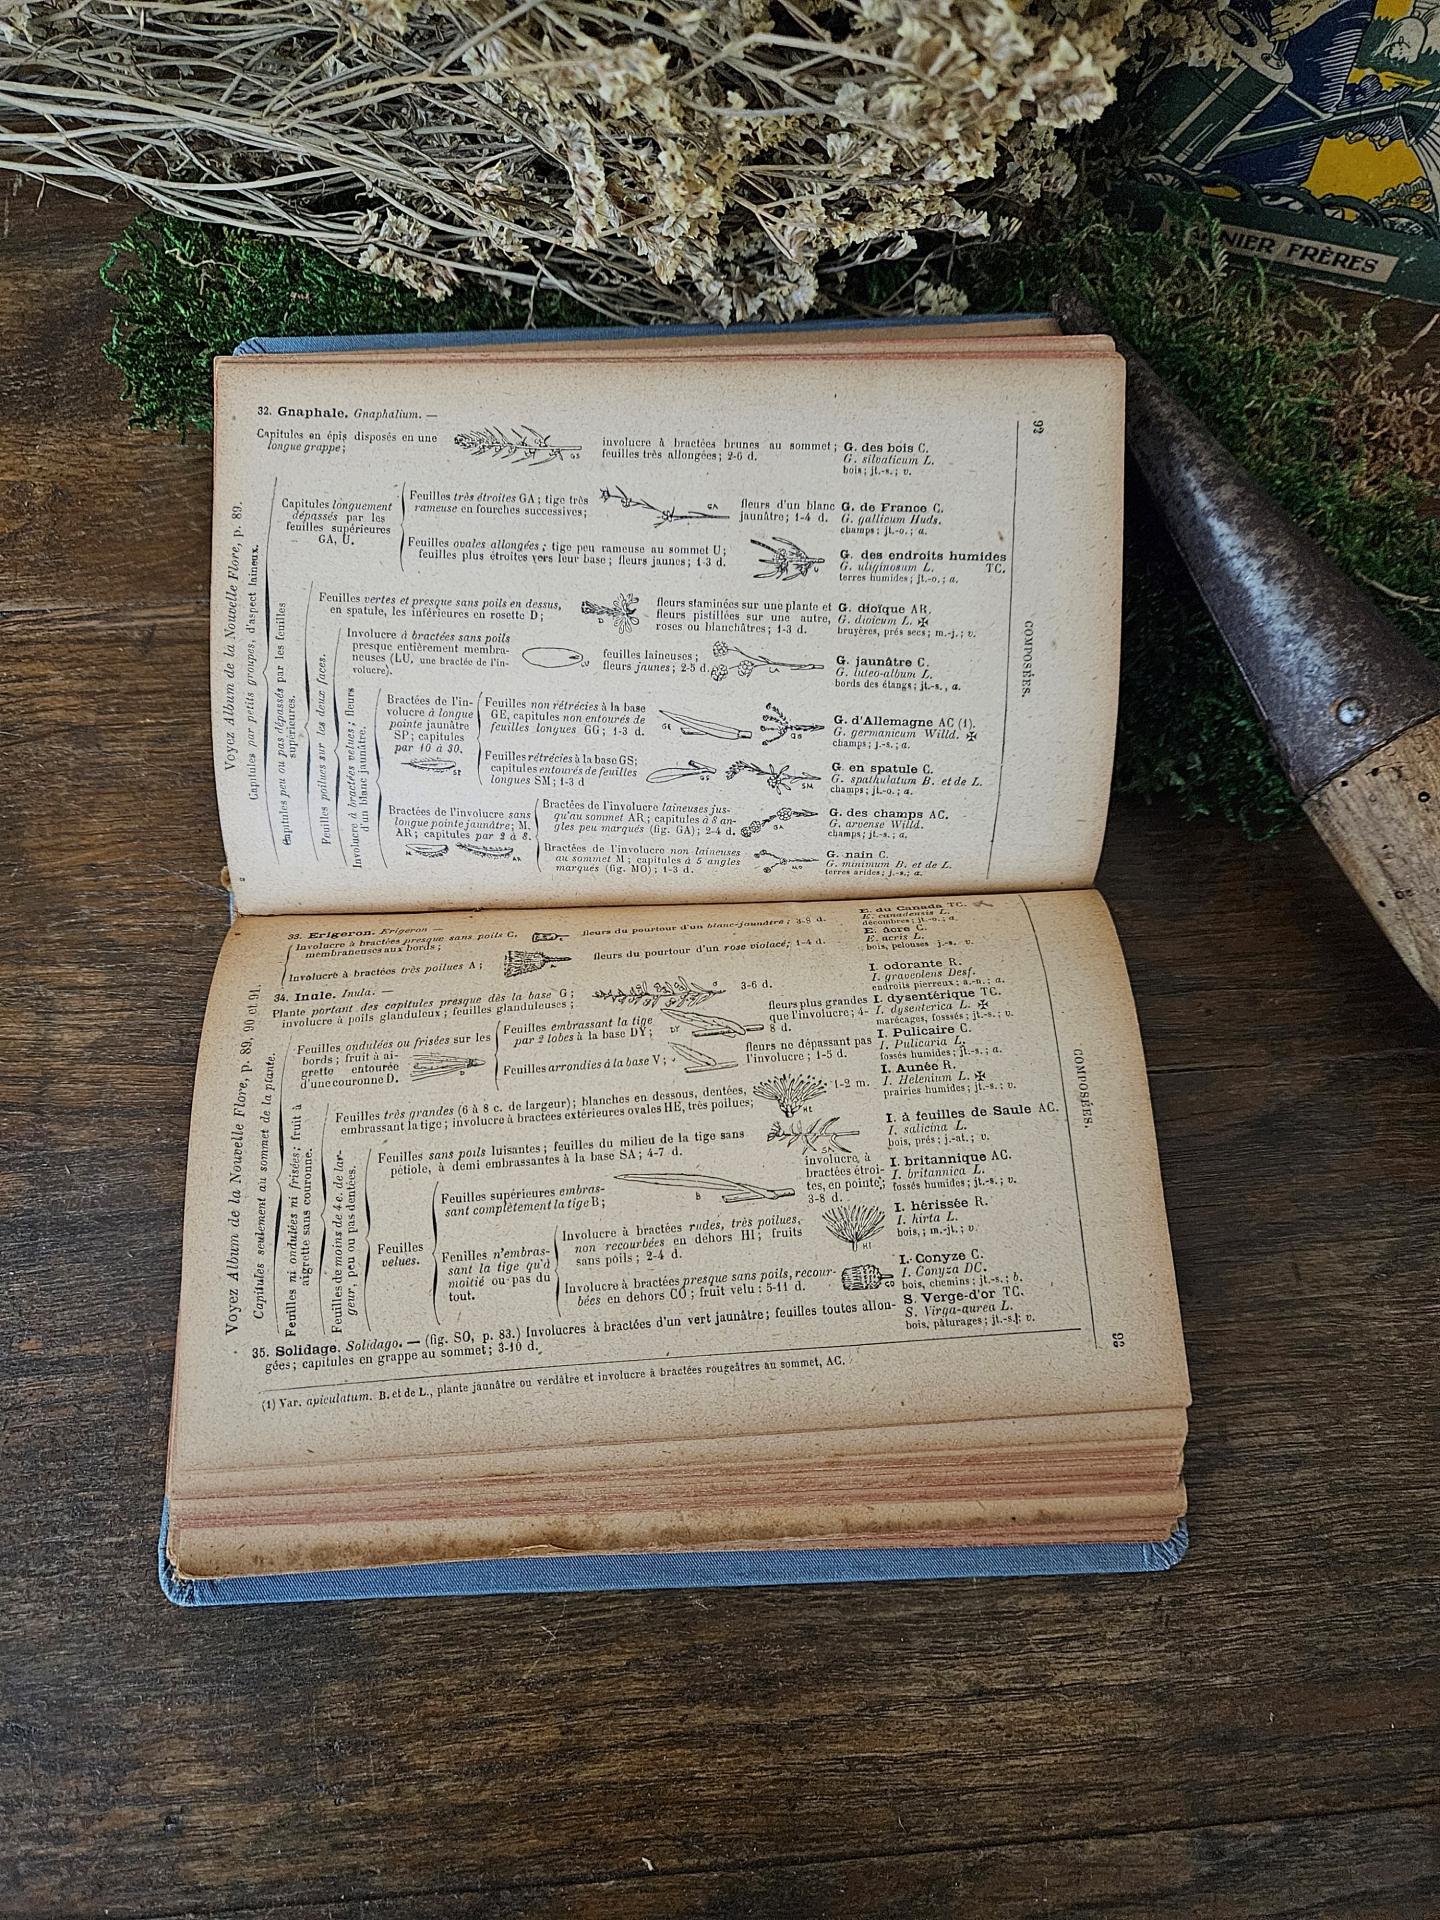 NIER FRÈRES
92
COMPOSÉES.
Voyez Album de la Nouvelle Flore, p. 89.
32. Gnaphale. Gnaphalium. —
Capitules en épis disposés en une
longue grappe;
GS
involucre à bractées brunes au sommet;
feuilles très allongées; 2-6 d.
G. des bois C.
G. silvaticum L.
bois; jt.-s.; v.
Capitules par petits groupes, d'aspect laineux.
Capitules longuement
dépassés par les
feuilles supérieures
GA, U.
Feuilles très étroites GA; tige très
rameuse en fourches successives;
GA
fleurs d'un blanc
jaunâtre; 1-4 d.
G. de France C.
G. gallicum Huds.
champs; jt.-o.; a.
Feuilles ovales allongées; tige peu rameuse au sommet U;
feuilles plus étroites vers leur base; fleurs jaunes; 1-3 d.
U
G. des endroits humides
G. uliginosum L. TC.
terres humides; jt.-o.; a.
Capitules peu ou pas dépassés par les feuilles
supérieures.
Feuilles vertes et presque sans poils en dessus,
en spatule, les inférieures en rosette D;
D
fleurs staminées sur une plante et
fleurs pistillées sur une autre,
roses ou blanchâtres; 1-3 d.
G. dioïque AR.
G. dioicum L. ✠
bruyères, prés secs; m.-j.; v.
Feuilles poilues sur les deux faces.
Involucre à bractées sans poils
presque entièrement membra-
neuses (LU, une bractée de l'in-
volucre).
LU
feuilles laineuses;
fleurs jaunes; 2-5 d.
LA
G. jaunâtre C.
G. luteo-album L.
bords des étangs; jt.-s., a.
Involucre à bractées velues; fleurs
d'un blanc jaunâtre.
Bractées de l'in-
volucre à longue
pointe jaunâtre
SP; capitules
par 10 à 30.
Feuilles non rétrécies à la base
GE, capitules non entourés de
feuilles longues GG; 1-3 d.
GE
GG
G. d'Allemagne AC (1).
G. germanicum Willd. ✠
champs; j.-s.; a.
Feuilles rétrécies à la base GS;
capitules entourés de feuilles
longues SM; 1-3 d
GS
SM
G. en spatule C.
G. spathulatum B. et de L.
champs; jt.-o.; a.
Bractées de l'involucre sans
longue pointe jaunâtre; M,
AR; capitules par 2 à 8.
M
AR
Bractées de l'involucre laineuses jus-
qu'au sommet AR; capitules à 8 an-
gles peu marqués (fig. GA); 2-4 d.
GA
G. des champs AC.
G. arvense Willd.
champs; jt.-s.; a.
Bractées de l'involucre non laineuses
au sommet M; capitules à 5 angles
marqués (fig. MO); 1-3 d.
MO
G. nain C.
G. minimum B. et de L.
terres arides; j.-s.; a.
Voyez Album de la Nouvelle Flore, p. 89, 90 et 91.
33. Erigeron. Erigeron —
Involucre à bractées presque sans poils C,
membraneuses aux bords;
fleurs du pourtour d'un blanc-jaunâtre; 3-8 d.
E. du Canada TC.
E. canadensis L.
décombres; jt.-o.; a.
Involucre à bractées très poilues A;
A
fleurs du pourtour d'un rose violacé; 1-4 d.
E. âcre C.
E. acris L.
bois, pelouses j.-s. v.
34. Inule. Inula. —
Plante portant des capitules presque dès la base G;
involucre à poils glanduleux; feuilles glanduleuses;
G
3-6 d.
I. odorante R.
I. graveolens Desf.
endroits pierreux; a.-n.; a.
Capitules seulement au sommet de la plante.
Feuilles ondulées ou frisées sur les
bords; fruit à ai-
grette entourée
d'une couronne D.
D
Feuilles embrassant la tige
par 2 lobes à la base DY;
DY
fleurs plus grandes
que l'involucre; 4-
8 d.
I. dysentérique TC.
I. dysenterica L. ✠
marécages, fossés; jt.-s.; v.
Feuilles arrondies à la base V;
V
fleurs ne dépassant pas
l'involucre; 1-5 d.
I. Pulicaire C.
I. Pulicaria L.
fossés humides; jt.-s.; a.
Feuilles ni ondulées ni frisées; fruit à
aigrette sans couronne.
Feuilles très grandes (6 à 8 c. de largeur); blanches en dessous, dentées,
embrassant la tige; involucre à bractées extérieures ovales HE, très poilues;
HE
1-2 m.
I. Aunée R.
I. Helenium L. ✠
prairies humides; jt.-s.; v.
Feuilles de moins de 4 c. de lar-
geur, peu ou pas dentées.
Feuilles sans poils luisantes; feuilles du milieu de la tige sans
pétiole, à demi embrassantes à la base SA; 4-7 d.
SA
I. à feuilles de Saule AC.
I. salicina L.
bois, prés; j.-at.; v.
Feuilles
velues.
Feuilles supérieures embras-
sant complètement la tige B;
B
involucre, à
bractées étroi-
tes, en pointe;
3-8 d.
I. britannique AC.
I. britannica L.
fossés humides; jt.-s.; v.
Feuilles n'embras-
sant la tige qu'à
moitié ou pas du
tout.
Involucre à bractées rudes, très poilues,
non recourbées en dehors HI; fruits
sans poils; 2-4 d.
HI
I. hérissée R.
I. hirta L.
bois,; m.-jt.; v.
Involucre à bractées presque sans poils, recour-
bées en dehors CO; fruit velu; 5-11 d.
CO
I. Conyze C.
I. Conyza DC.
bois, chemins; jt.-s.; b.
35. Solidage. Solidago. — (fig. SO, p. 83.) Involucres à bractées d'un vert jaunâtre; feuilles toutes allon-
gées; capitules en grappe au sommet; 3-10 d.
S. Verge-d'or TC.
S. Virga-aurea L.
bois, pâturages; jt.-s.; v.
(1) Var. apiculatum. B. et de L., plante jaunâtre ou verdâtre et involucre à bractées rougeâtres au sommet, AC.
COMPOSÉES.